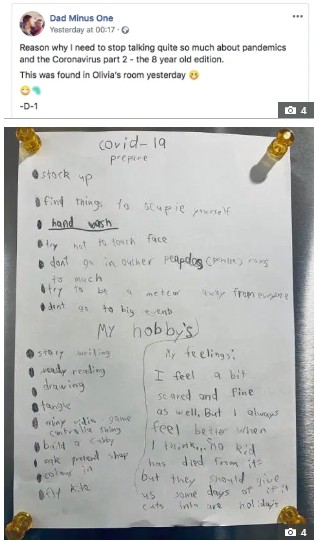 Dad Minus One
Yesterday at 00:17
Reason why I need to stop talking quite so much about pandemics
and the Coronavirus part 2 - the 8 year old edition.
This was found in Olivia's room yesterday
-D-1
4
covid-19
prepare
stock up
find things to ocupie yourself
hand wash
try not to touch face
dont go in outher (peoples) rooms
to much
try to be a meter away from everyone
dont go to big events
My hobby's
story writing
reading
drawing
tangle
video game
build a cubby
pretend shop
colour in
fly kite
My feelings:
I feel a bit
scared and fine
as well, But I always
feel better when
I think... no kid
has died from it
but they should give
us some days of if it
cuts into are holidays
4